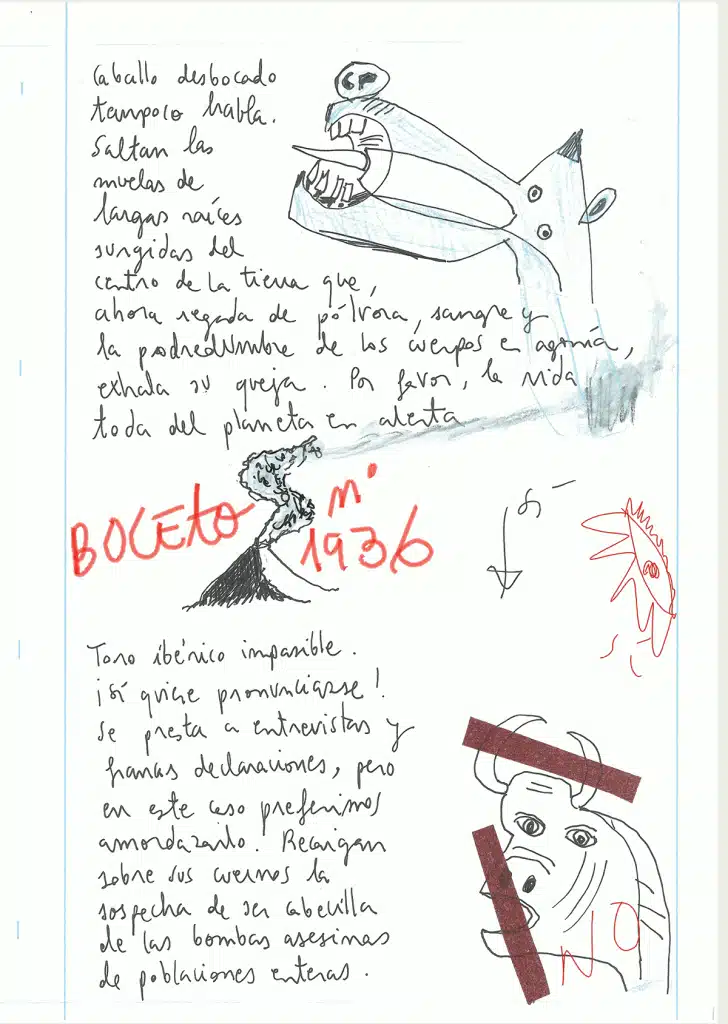 Caballo desbocado
tampoco habla.
Saltan las
muelas de
largas raíces
surgidas del
centro de la tierra que,
ahora regada de pólvora, sangre y
la podredumbre de los cuerpos en agonía,
exhala su queja. Por favor, la vida
toda del planeta en alerta
BOCETO nº
1936
Sí
Toro ibérico impasible.
¡Sí quiere pronunciarse!
Se presta a entrevistas y
francas declaraciones, pero
en este caso preferimos
amordazarlo. Recaigan
sobre sus cuernos la
sospecha de ser cabecilla
de las bombas asesinas
de poblaciones enteras.
NO